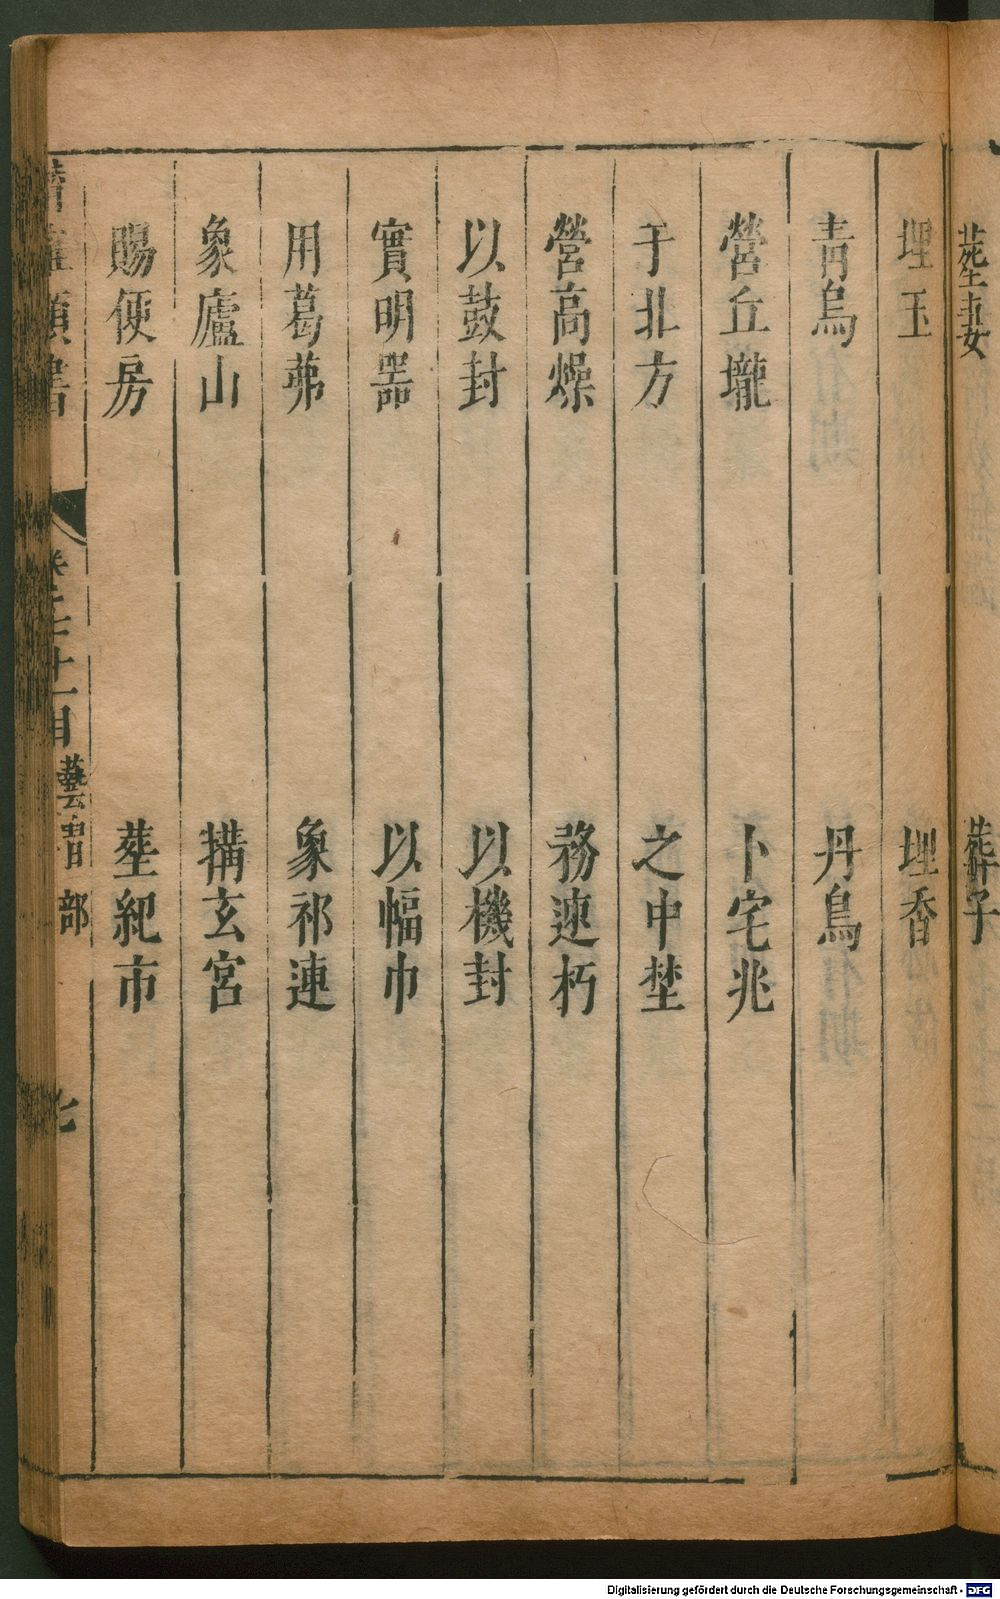 塟妻　葬子
埋玉　埋香
青烏　丹鳥
營丘壠　卜宅兆
于北方　之中埜
營高燥　務速朽
以鼓封　以機封
實明器　以幅巾
用葛茀　象祁連
象廬山　搆玄宮
賜便房　塟紀市
類書　卷之七十一目　藝習部　七
Digitalisierung gefördert durch die Deutsche Forschungsgemeinschaft - DFG